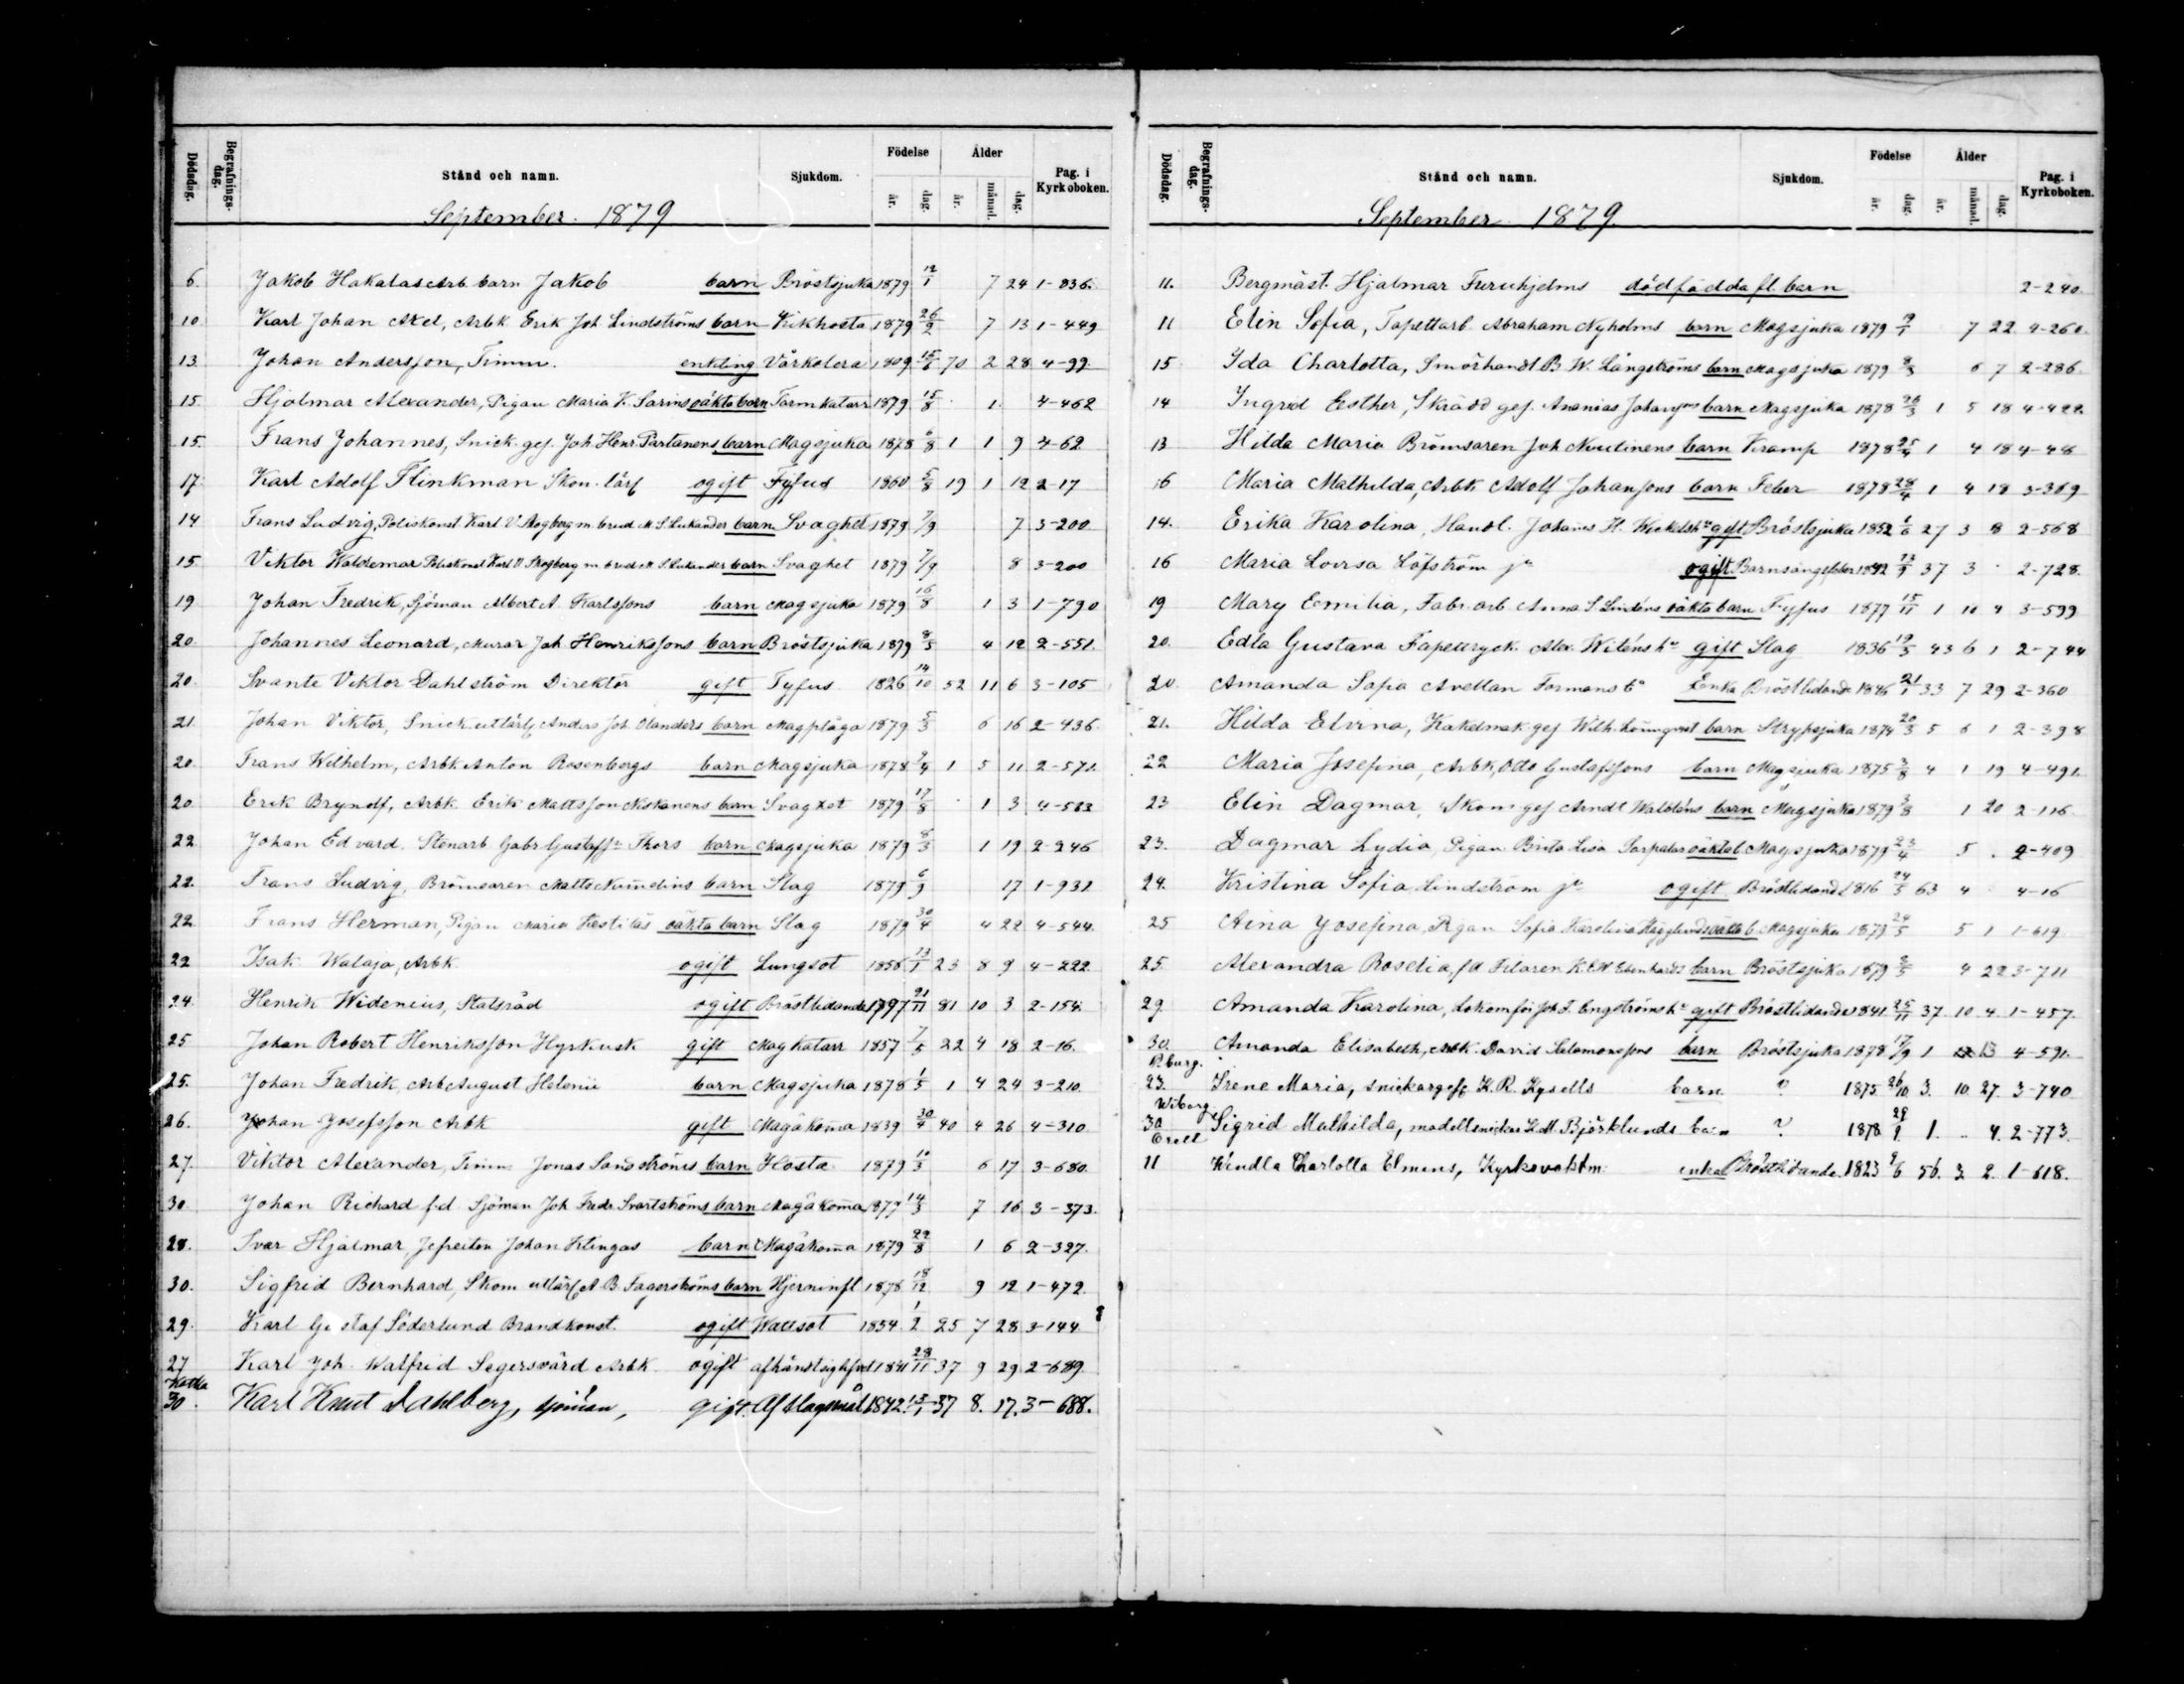 Dödsdag. Begrafnings-dag. Stånd och namn. Sjukdom. Födelse år. dag. Ålder år. månad. dag. Pag. i Kyrkoboken.
September 1879
6. Jakob Hakalas Arb. barn Jakob barn Bröstsjuka 1879 12/1 7 24 1-836.
10 Karl Johan Axel, Arbk. Erik Joh Lindströms barn Kikhosta 1879 26/2 7 13 1-449
13. Johan Andersson, Timm. enkling Vårkolera 1809 15/6 70 2 28 4-99.
15. Hjalmar Alexander, Pigan Maria K. Sarins oäkta barn Tarmkatarr 1879 15/8 1. 4-462
15. Frans Johannes, Snick. ges. Joh Henr. Partanens barn Magsjuka 1878 6/8 1 1 9 4-62
17. Karl Adolf Flinkman Skom. lärl ogift Tyfus 1860 5/8 19 1 12 2-17
14 Frans Ludvig, Poliskonst. Karl V. Skogberg m brud M. S. Lukander barn Svaghet 1879 7/9 7 3-200
15. Viktor Waldemar Poliskonst Karl V Skogberg m brud M S. Lukander barn Svaghet 1879 7/9 8 3-200
19 Johan Fredrik, Sjöman Albert A. Karlssons barn Magsjuka 1879 16/8 1 3 1-790
20. Johannes Leonard, Murar Joh. Henrikssons barn Bröstsjuka 1879 8/5 4 12 2-551.
20. Svante Viktor Dahlström Direktör gift Tyfus 1826 14/10 52 11 6 3-105
21. Johan Viktor, Snick. utlärl, Anders Joh. Olanders barn Magplåga 1879 5/3 6 16 2-436.
20. Frans Wilhelm, Arbk. Anton Rosenbergs barn Magsjuka 1878 9/4 1 5 11 2-571.
20. Erik Brynolf, Arbk. Erik Mattsson Niskanens barn Svaghet 1879 17/8 1 3 4-583.
22. Johan Edvard. Stenarb. Gabr. Gustafss. Thors barn Magsjuka 1879 8/3 1 19 2-246
22. Frans Ludvig, Brömsaren Matts Nummelins barn Slag 1879 6/9 17 1-931
22. Frans Herman, Pigan Maria Kestiläs oäkta barn Slag 1879 30/4 4 22 4-544.
22 Isak Walaja, Arbk. ogift Lungsot 1856 13/1 23 8 9 4-222.
24. Henrik Widenius, Statsråd ogift Bröstlidande 1797 21/11 81 10 3 2-154.
25 Johan Robert Henriksson Hyrkusk gift Magkatarr 1857 7/5 22 4 18 2-16.
25. Johan Fredrik, Arb August Helenii barn Magsjuka 1878 1/5 1 4 24 3-210.
26. Johan Josefsson Arbk gift Magåkomma 1839 30/4 40 4 26 4-310.
27. Viktor Alexander, Timm. Jonas Sandströms barn Hosta 1879 10/3 6 17 3-680.
30. Johan Richard f.d. Sjöman Joh. Fredr. Svartströms barn Magåkomma 1877 14/3 7 16 3-373.
28. Ivar Hjalmar, Jefreitern Johan Klingas barn Magåkomma 1879 22/8 1 6 2-327.
30. Sigfrid Bernhard, Skom. utlärl, A B. Fagerströms barn Hjerninfl 1878 18/12 9 12 1-472.
29. Karl Gustaf Söderlund Brandkonst. ogift Wattsot 1854 1/2 25 7 28 3-144
27 Karl Joh. Walfrid Segersvärd Arbk ogift afhändsig lifvet 1841 28/11 37 9 29 2-689.
Kotka
30. Karl Knut Dahlberg, sjöman, gift. Af slagsmål 1842 13/1 37 8. 17. 3-688.
Dödsdag. Begrafnings-dag. Stånd och namn. Sjukdom. Födelse år. dag. Ålder år. månad. dag. Pag. i Kyrkoboken.
September 1879.
11. Bergmäst. Hjalmar Furuhjelms dödfödda fl. barn 2-240.
11 Elin Sofia, Tapettarb. Abraham Nyholms barn Magsjuka 1879 19/1 7 22 4-260.
15 Ida Charlotta, Smörhandl B. W. Långströms barn Magsjuka 1879 8/3 6 7 2-286.
14 Ingrid Esther, Skrädd ges. Ananias barn Magsjuka 1878 26/3 1 5 18 4-422.
13 Hilda Maria Brömsaren Joh Nuutinens barn Kramp 1878 25/4 1 4 18 4-48
16 Maria Mathilda, Arbk Adolf Johanssons barn Feber 1878 28/4 1 4 18 3-369
14. Erika Karolina, Handl. Johannes H. gift Bröstsjuka 1852 6/6 27 3 8 2-568
16 Maria Lovisa Löfström jn ogift Barnsängsfeber 1842 13/9 37 3 2-728.
19 Mary Emilia, Fabr. arb Anna S. Lindéns oäkta barn Tyfus 1877 15/11 1 10 4 3-599
20. Edla Gustava Tapettryck. Alex. Wiléns h:u gift Slag 1836 19/3 43 6 1 2-744
20. Amanda Sofia Avellan Formans e:a Enka Bröstlidande 1846 21/1 33 7 29 2-360
21. Hilda Elvina, Kakelmak. ges Wilh. Lönnqvist barn Strypsjuka 1874 20/3 5 6 1 2-398
22 Maria Josefina, Arbk, Otto Gustafssons barn Magsjuka 1875 3/8 4 1 19 4-491.
23 Elin Dagmar, Skom ges Arndt Walldéns barn Magsjuka 1879 3/8 1 20 2-116.
23. Dagmar Lydia, Pigan Brita Lisa Sarpalas oäkta b. Magsjuka 1879 23/4 5 2-409
24. Kristina Sofia Lindström jn ogift Bröstlidande 1816 24/5 63 4 4-16
25 Aina Josefina, Pigan Sofia Karolina Hägglunds oäkta b. Magsjuka 1879 24/5 5 1 1-619.
25. Alexandra Roselia, fd Filaren K. E. W Ebenhards barn Bröstsjuka 1879 3/5 4 22 3-711
29. Amanda Karolina, Lokomför Joh. F. Engströms h:u gift Bröstlidande 1841 25/11 37. 10 4. 1-457.
30. Amanda Elisabeth, Arbk. David Salomonssons barn Bröstsjuka 1878. 17/9 1 13 4-591.
P.burg.
23. Irene Maria, snickargess K. R. Kysells barn ? 1875 26/10 3. 10 27. 3-740
Wiborg
30 Sigrid Mathilda, modellsnickar K. M. Björklunds barn ? 1878 29/9 1. 4. 2-773.
11 Wendla Charlotta Elmens, Kyrkovaktm. enka Bröstlidande. 1823 9/6 56. 3 2. 1-618.